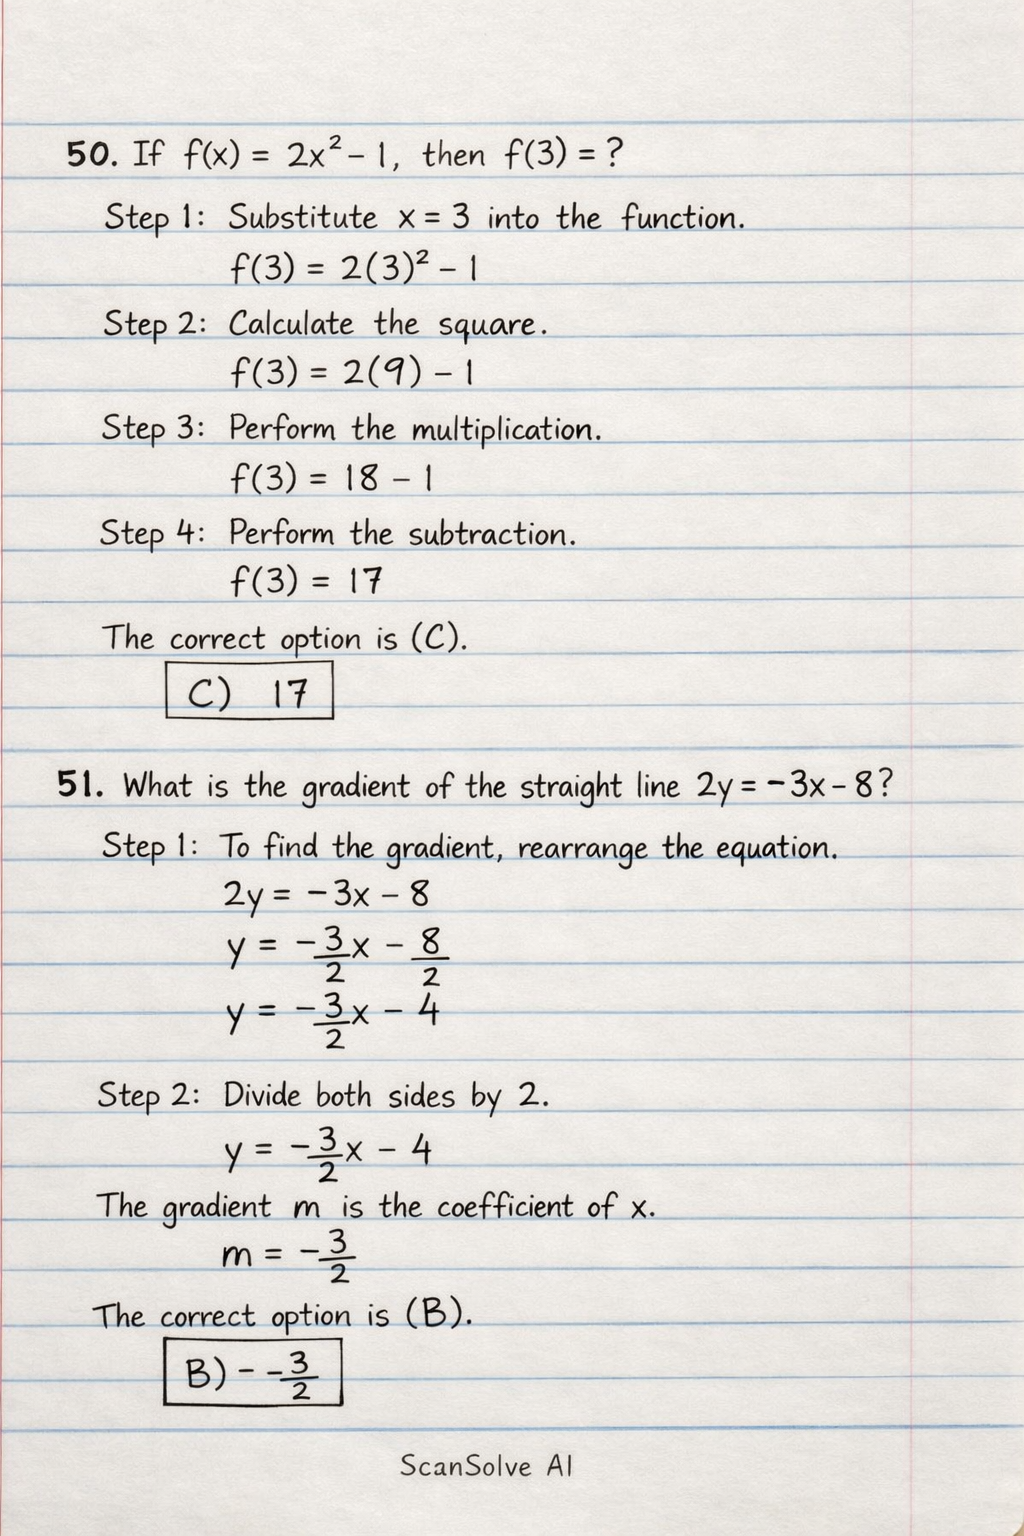 50. If f(x) = 2x² – 1, then f(3) = ?
Step 1: Substitute x = 3 into the function.
f(3) = 2(3)² – 1
Step 2: Calculate the square.
f(3) = 2(9) – 1
Step 3: Perform the multiplication.
f(3) = 18 – 1
Step 4: Perform the subtraction.
f(3) = 17
The correct option is (C).
C) 17
51. What is the gradient of the straight line 2y = –3x – 8?
Step 1: To find the gradient, rearrange the equation.
2y = –3x – 8
y = –3/2x – 8/2
y = –3/2x – 4
Step 2: Divide both sides by 2.
y = –3/2x – 4
The gradient m is the coefficient of x.
m = –3/2
The correct option is (B).
B) – –3/2
ScanSolve AI